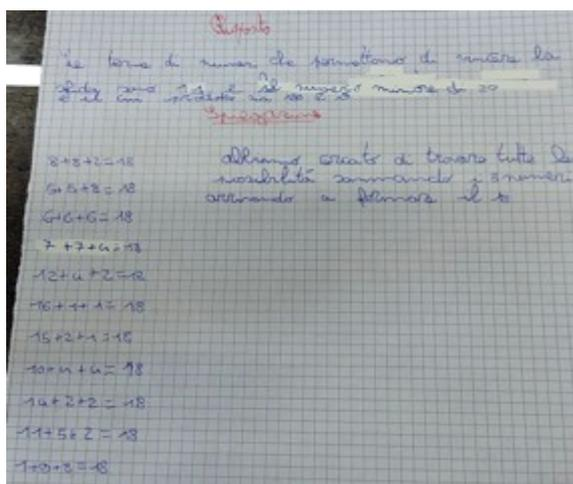 Risposta
le terne di numeri che permettono di vincere la
sfida sono 11 e il numero minore di 20
è il cui prodotto
Spiegazione
8+8+2=18
5+5+8=18
6+6+6=18
7+7+4=18
12+4+2=18
16+1+1=18
15+2+1=18
10+4+4=18
14+2+2=18
11+5+2=18
1+9+8=18
Abbiamo cercato di trovare tutte le
possibilità sommando i 3 numeri
arrivando a formare il